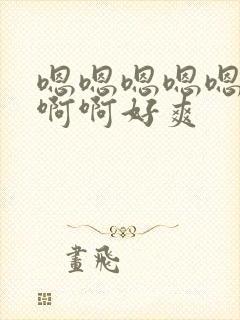 嗯嗯嗯嗯嗯
啊啊好爽
畫飛